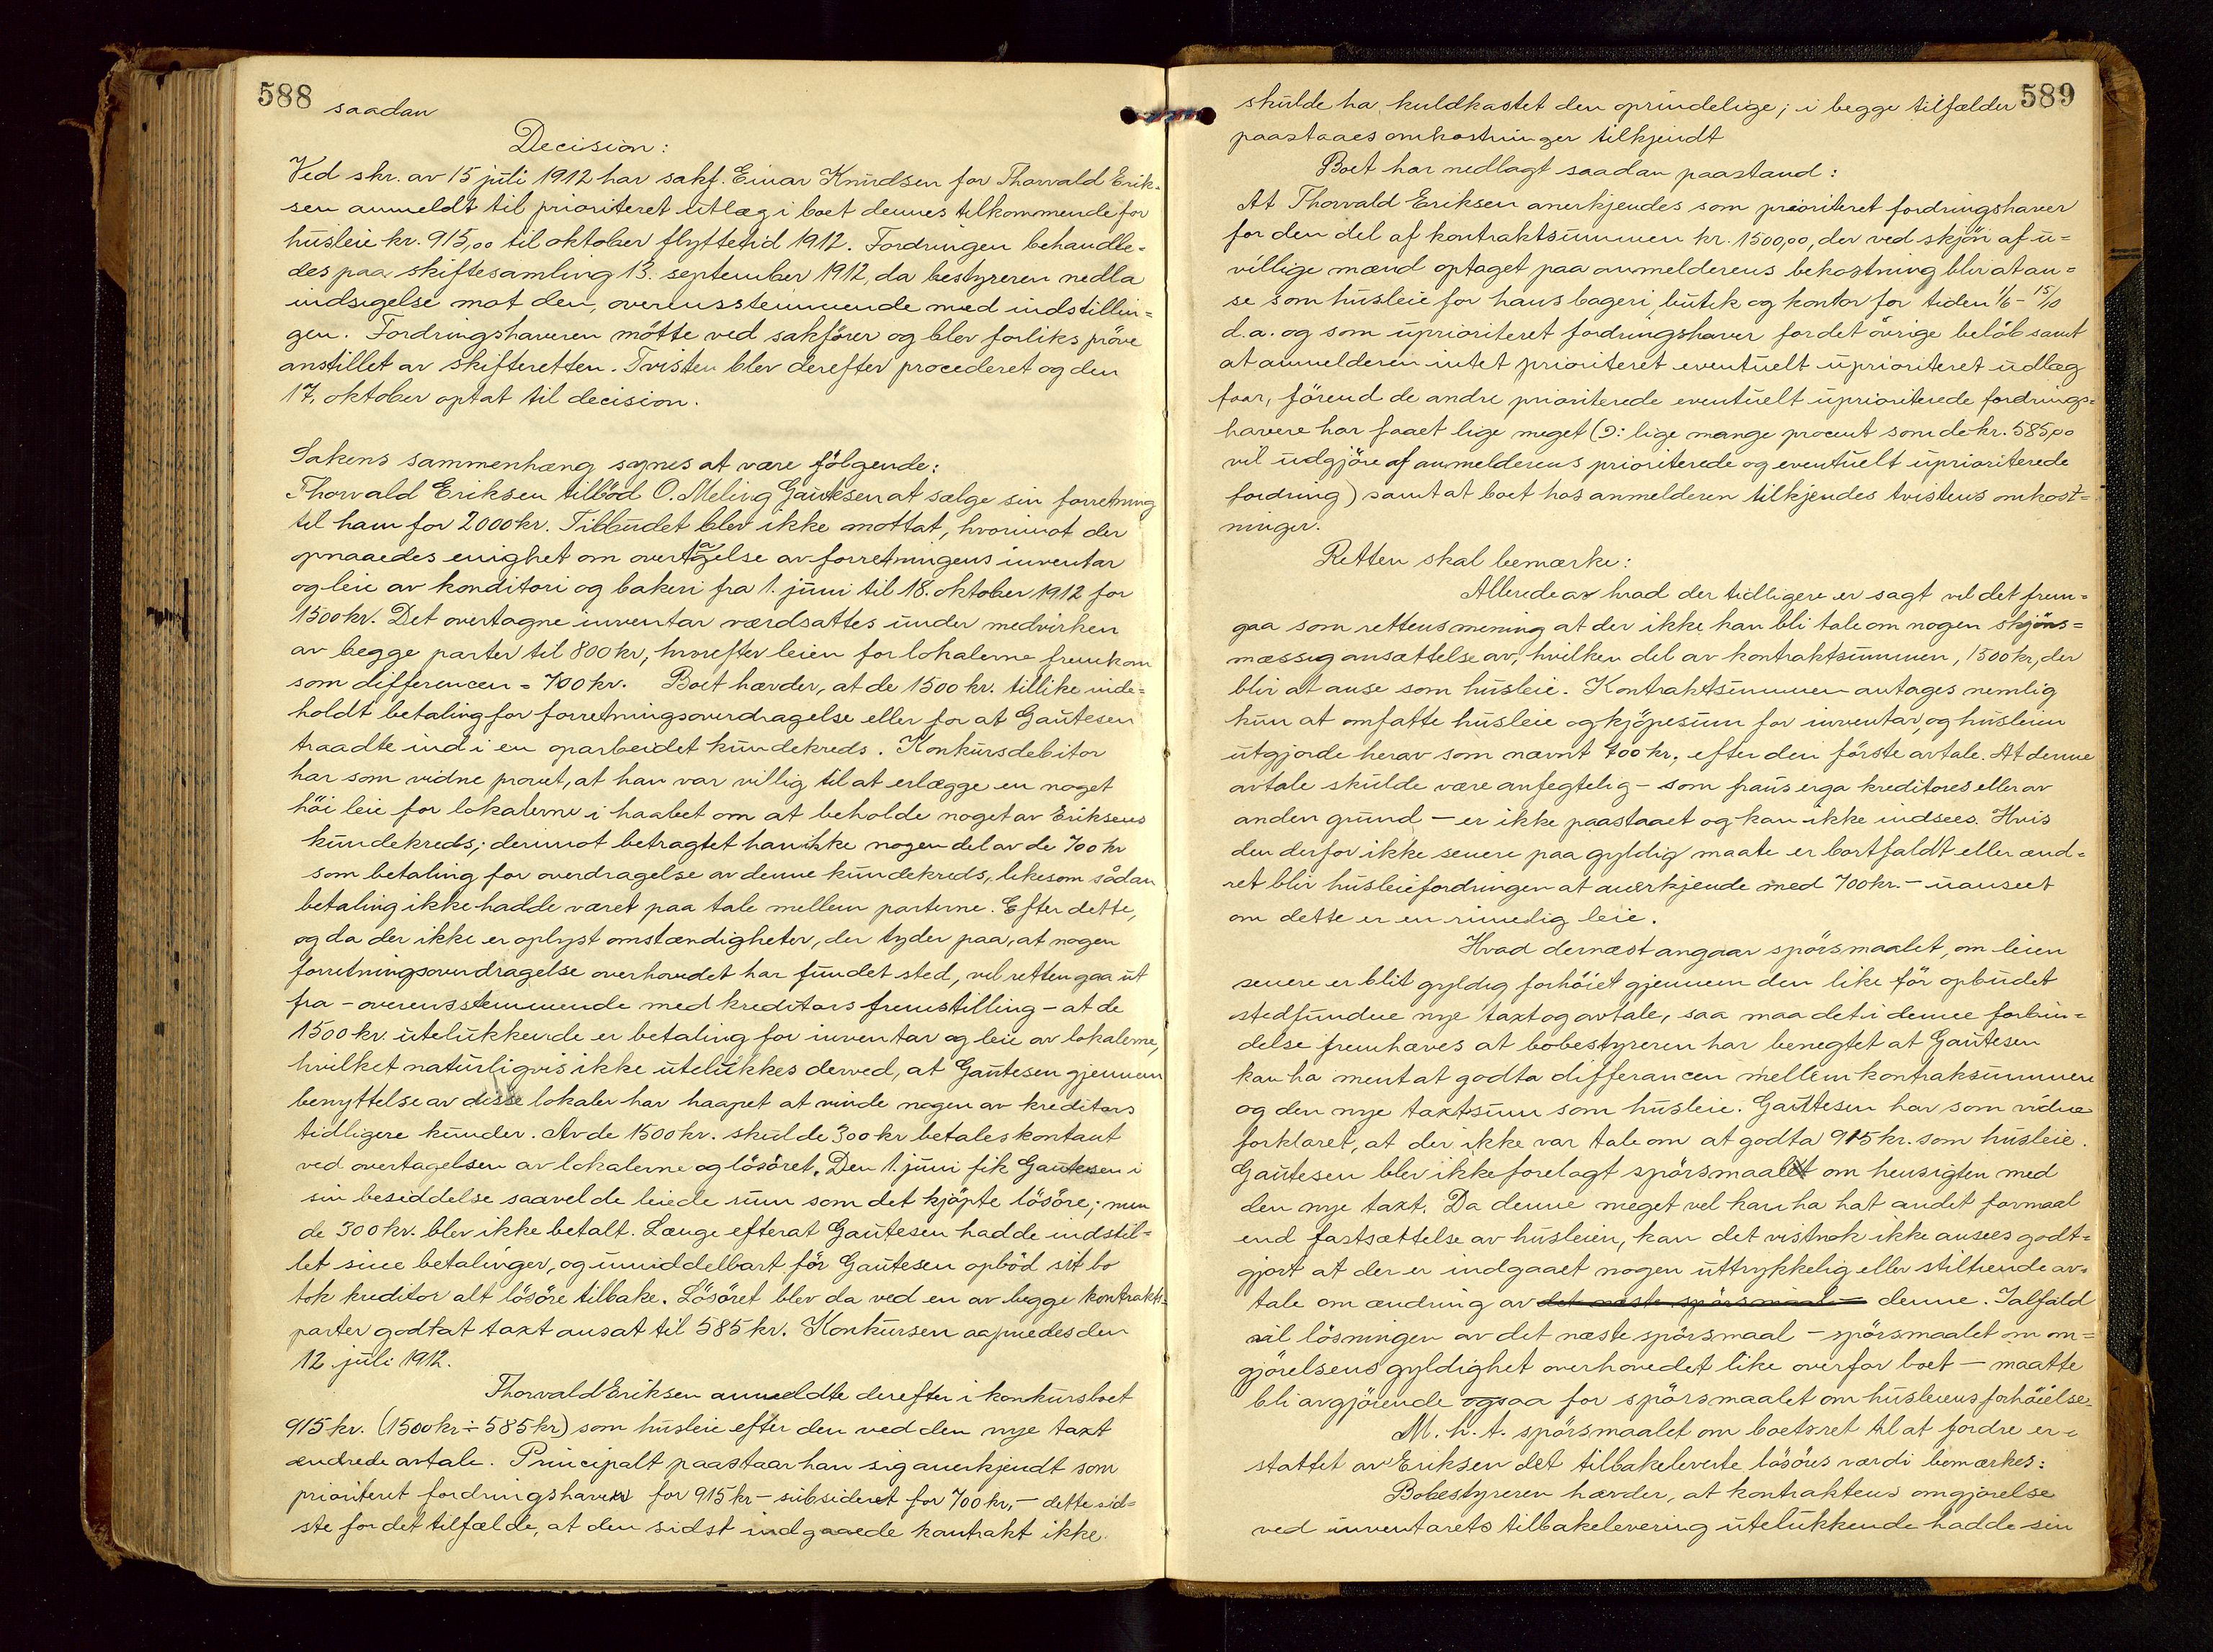 588
saadan
Decision:
Ved skr. av 15 juli 1912 har sakf. Einar Knudsen for Thorvald Erik-
sen anmeldt til prioriteret utlæg i boet dennes tilkommende for
husleie kr. 915,00 til oktober flyttetid 1912. Fordringen behandle-
des paa skiftesamling 13. september 1912, da bestyreren nedla
indsigelse mot den, overensstemmende med indstillin-
gen. Fordringshaveren mötte ved sakförer og blev forliks pröve
anstillet av skifteretten. Tvisten blev derefter procederet og den
17. oktober optat til decision.
Sakens sammenhæng synes at være fölgende:
Thorvald Eriksen tilböd O. Meling Gautesen at sælge sin forretning
til ham for 2000 kr. Tilbudet blev ikke mottat, hvorimot der
opnaaedes enighet om overtagelse av forretningens inventar
og leie av konditori og bakeri fra 1. juni til 18. oktober 1912 for
1500 kr. Det overtagne inventar værdsattes under medvirken
av begge parter til 800 kr, hvorefter leien for lokalerne fremkom
som differencen = 700 kr. Boet hævder, at de 1500 kr. tillike inde-
holdt betaling for forretningsoverdragelse eller for at Gautesen
traadte ind i en oparbeidet kundekreds. Konkursdebitor
har som vidne provet, at han var villig til at erlægge en noget
höi leie for lokalerne i haabet om at beholde noget av Eriksens
kundekreds; derimot betragtet han ikke nogen del av de 700 kr
som betaling for overdragelse av denne kundekreds, likesom sådan
betaling ikke hadde været paa tale mellem parterne. Efter dette,
og da der ikke er oplyst omstændigheter, der tyder paa, at nogen
forretningsoverdragelse overhovedet har fundet sted, vil retten gaa ut
fra - overensstemmende med kreditors fremstilling - at de
1500 kr. utelukkende er betaling for inventar og leie av lokalerne,
hvilket naturligvis ikke utelukkes derved, at Gautesen gjennem
benyttelse av disse lokaler har haapet at vinde nogen av kreditors
tidligere kunder. Av de 1500 kr. skulde 300 kr betales kontant
ved overtagelsen av lokalerne og lösöret. Den 1. juni fik Gautesen i
sin besiddelse saavel de leiede rum som det kjöpte lösöre; men
de 300 kr. blev ikke betalt. Længe efterat Gautesen hadde indstil-
let sine betalinger, og umiddelbart för Gautesen opböd sit bo
tok kreditor alt lösöre tilbake. Lösöret blev da ved en av begge kontrakts-
parter godtat taxt ansat til 585 kr. Konkursen aapnedes den
12 juli 1912.
Thorvald Eriksen anmeldte derefter i konkursboet
915 kr. (1500 kr ÷ 585 kr) som husleie efter den ved den nye taxt
ændrede avtale. Principalt paastaar han sig anerkjendt som
prioriteret fordringshaver for 915 kr - subsideret for 700 kr, - dette sid-
ste for det tilfælde, at den sidst indgaaede kontrakt ikke
589
skulde ha kuldkastet den oprindelige; i begge tilfælder
paastaaes omkostninger tilkjendt
Boet har nedlagt saadan paastand:
At Thorvald Eriksen anerkjendes som prioriteret fordringshaver
for den del af kontraktsummen kr. 1500,00, der ved skjön af u-
villige mænd optaget paa anmelderens bekostning blir at an-
se som husleie for hans bageri, butik og kontor for tiden 1/6 - 15/10
d.a. og som uprioriteret fordringshaver for det övrige belöb samt
at anmelderen intet prioriteret eventuelt uprioriteret udlæg
faar, förend de andre prioriterede eventuelt uprioriterede fordrings-
havere har faaet lige meget (ɔ: lige mange procent som de kr. 585,00
vil udgjöre af anmelderens prioriterede og eventuelt uprioriterede
fordring) samt at boet hos anmelderen tilkjendes tvistens omkost-
ninger.
Retten skal bemærke:
Allerede av hvad der tidligere er sagt vil det frem-
gaa som rettens mening at der ikke kan bli tale om nogen skjöns-
mæssig ansættelse av, hvilken del av kontraktsummen, 1500 kr, der
blir at anse som husleie. Kontraktsummen antages nemlig
kun at omfatte husleie og kjöpesum for inventar, og husleien
utgjorde herav som nævnt 700 kr. efter den förste avtale. At denne
avtale skulde være anfegtelig - som fraus erga kreditores eller av
anden grund - er ikke paastaaet og kan ikke indsees. Hvis
den derfor ikke senere paa gyldig maate er bortfaldt eller ænd-
ret blir husleiefordringen at anerkjende med 700 kr. - uanseet
om dette er en rimelig leie.
Hvad dernæst angaar spörsmaalet, om leien
senere er blit gyldig forhöiet gjennem den like för opbudet
stedfundne nye taxt og avtale, saa maa det i denne forbin-
delse fremhæves at bobestyreren har benegtet at Gautesen
kan ha ment at godta differancen mellem kontraksummen
og den nye taxtsum som husleie. Gautesen har som vidne
forklaret, at der ikke var tale om at godta 915 kr. som husleie.
Gautesen blev ikke forelagt spörsmaalet om hensigten med
den nye taxt. Da denne meget vel kan ha hat andet formaal
end fastsættelse av husleien, kan det vistnok ikke ansees godt-
gjort at der er indgaaet nogen uttrykkelig eller stiltiende av-
tale om ændring av det næste spörsmaal - denne. Ialfald
vil lösningen av det næste spörsmaal - spörsmaalet om om-
gjörelsens gyldighet overhovedet like overfor boet - maatte
bli avgjörende ogsaa for spörsmaalet om husleiens forhöielse.
M. h. t. spörsmaalet om boets ret til at fordre er-
stattet av Eriksen det tilbakeleverte lösöres værdi bemærkes:
Bobestyreren hævder, at kontraktens omgjörelse
ved inventarets tilbakelevering utelukkende hadde sin